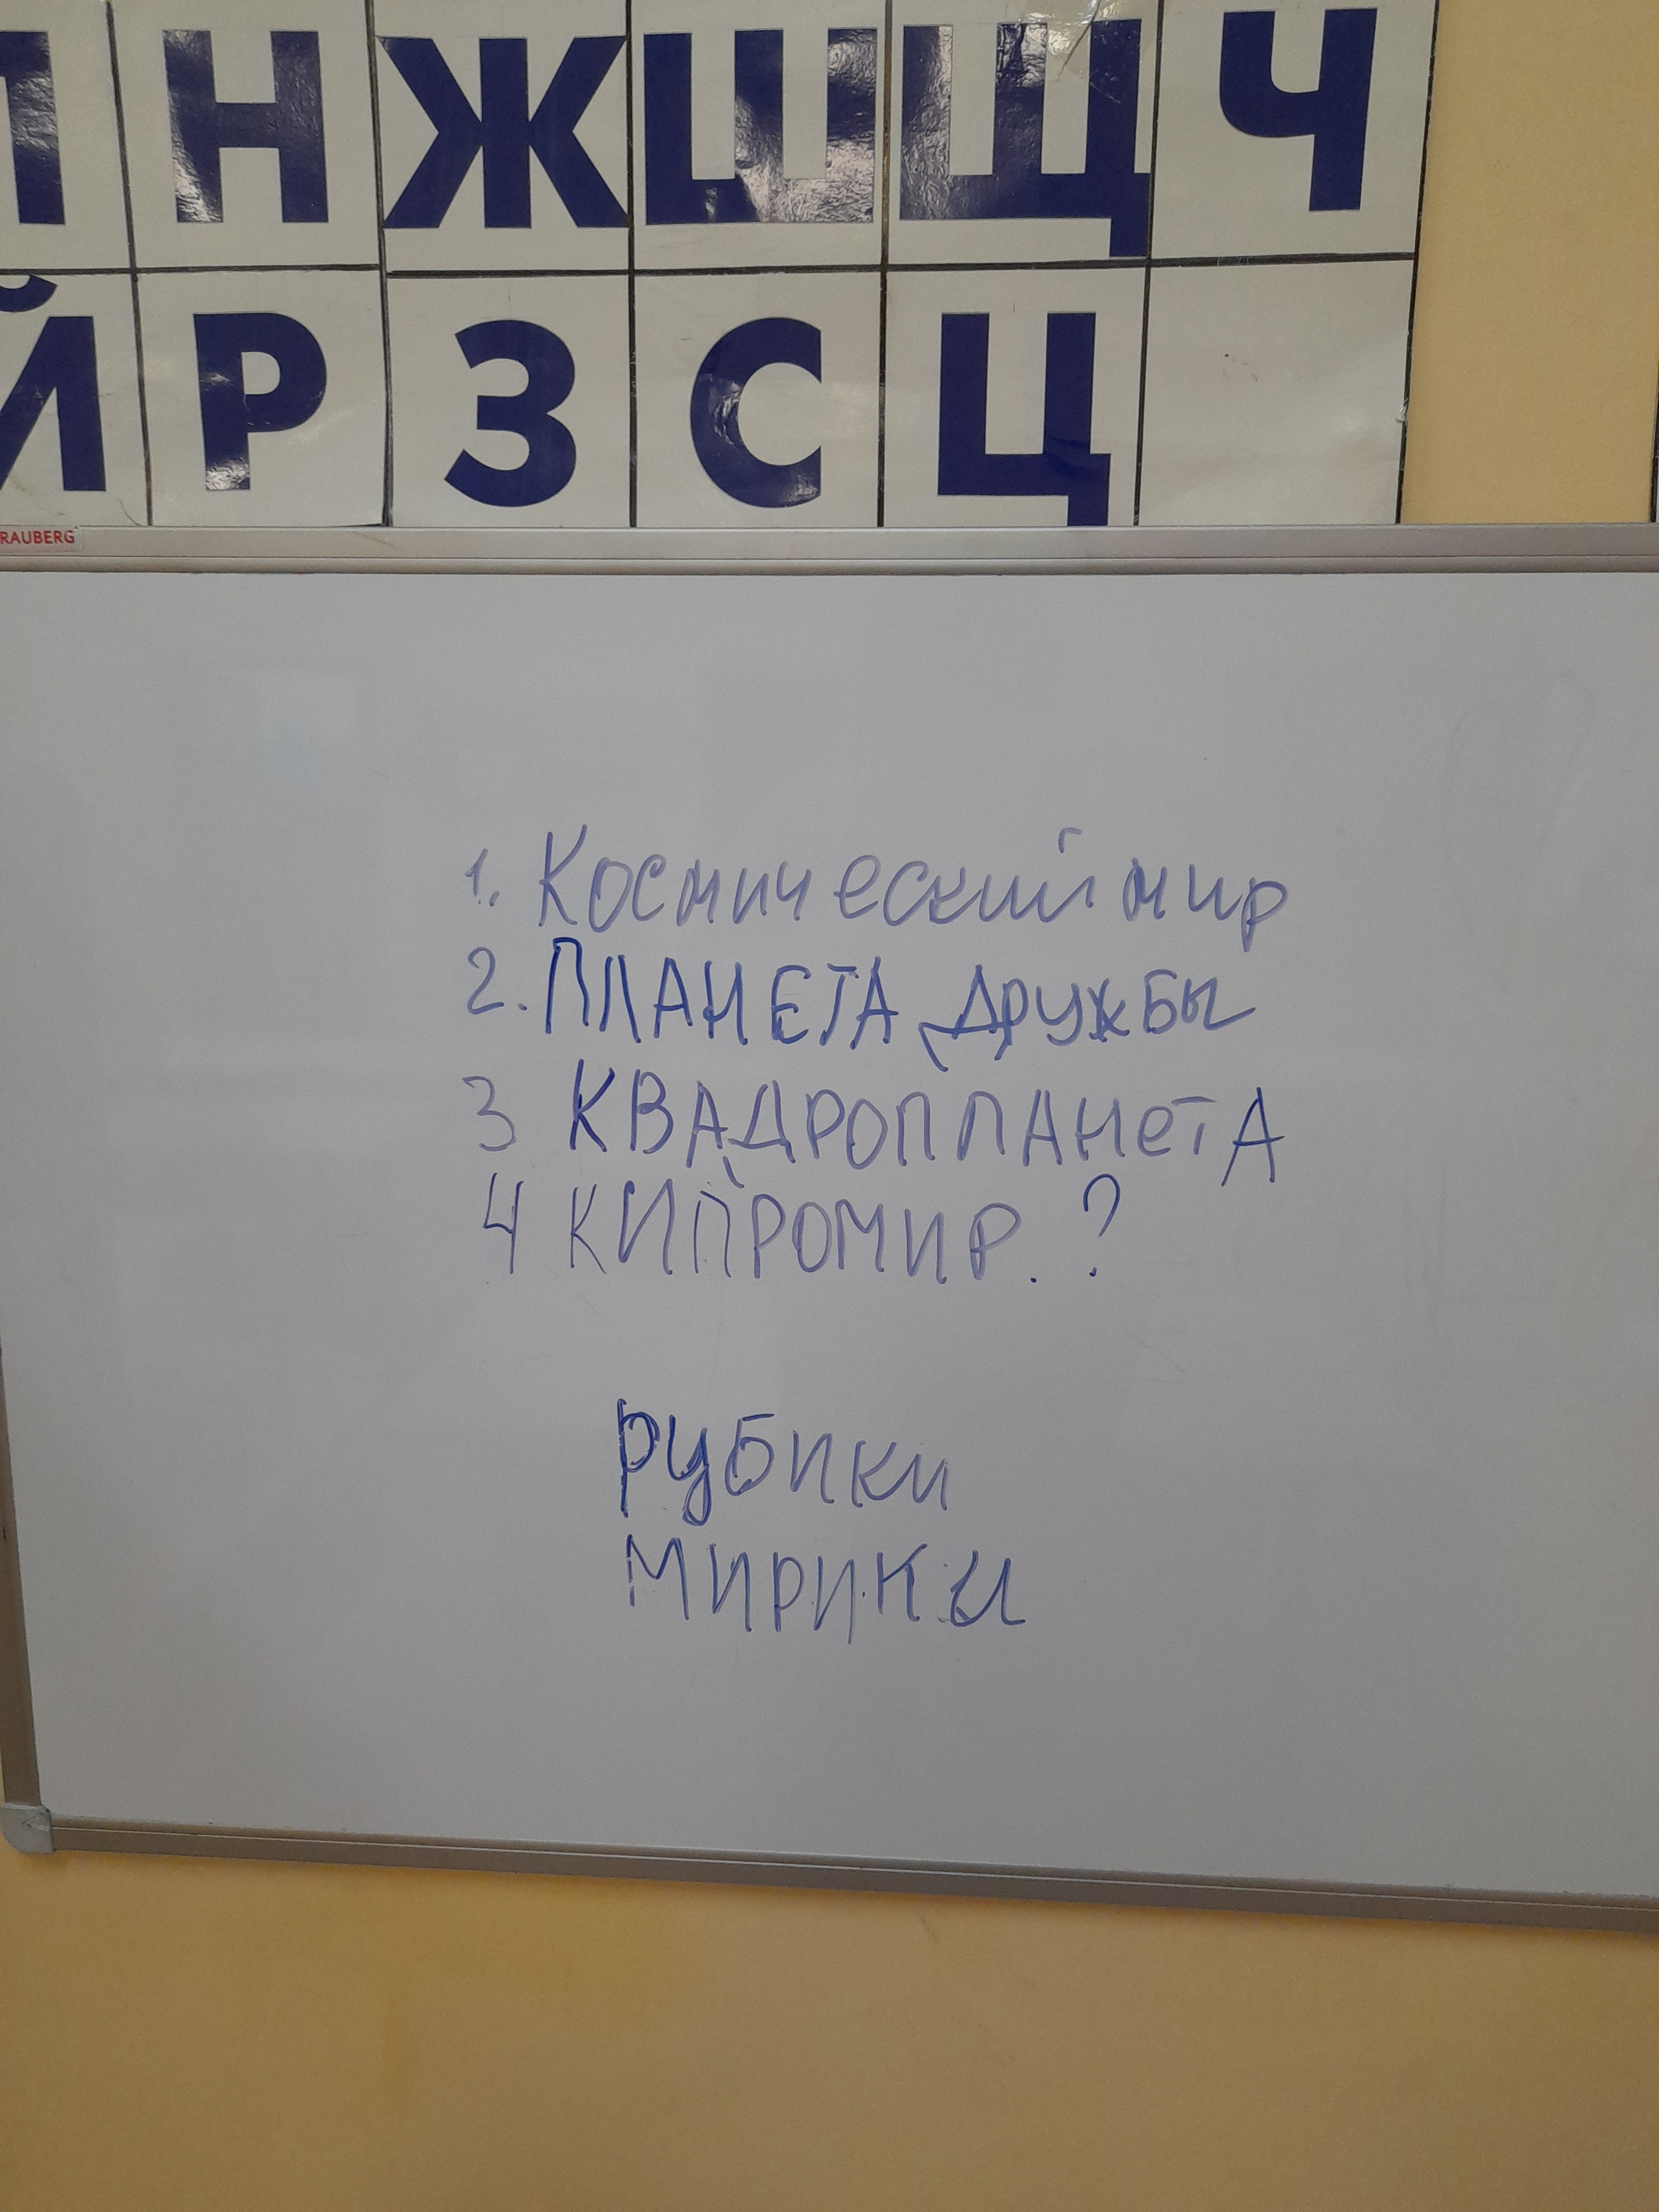 Л Н Ж Ш Щ Ч
Й Р З С Ц
RAUBERG
1. Космический мир
2. ПЛАНЕТА ДРУЖБЫ
3 КВАДРОПЛАНЕТА
4 КИПРОМИР. ?
РУБИКИ
МИРИКИ